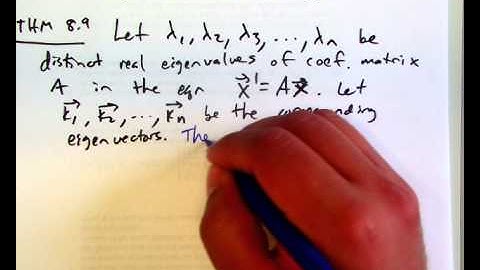 THM 8.9 Let λ₁, λ₂, λ₃, ..., λn be
distinct real eigenvalues of coef. matrix
A in the eqn x⃗' = Ax⃗. Let
k⃗₁, k⃗₂, ..., k⃗n be the
eigenvectors. The